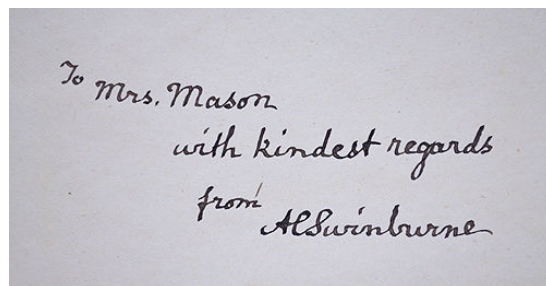 To Mrs. Mason
with kindest regards
from
ACSwinburne